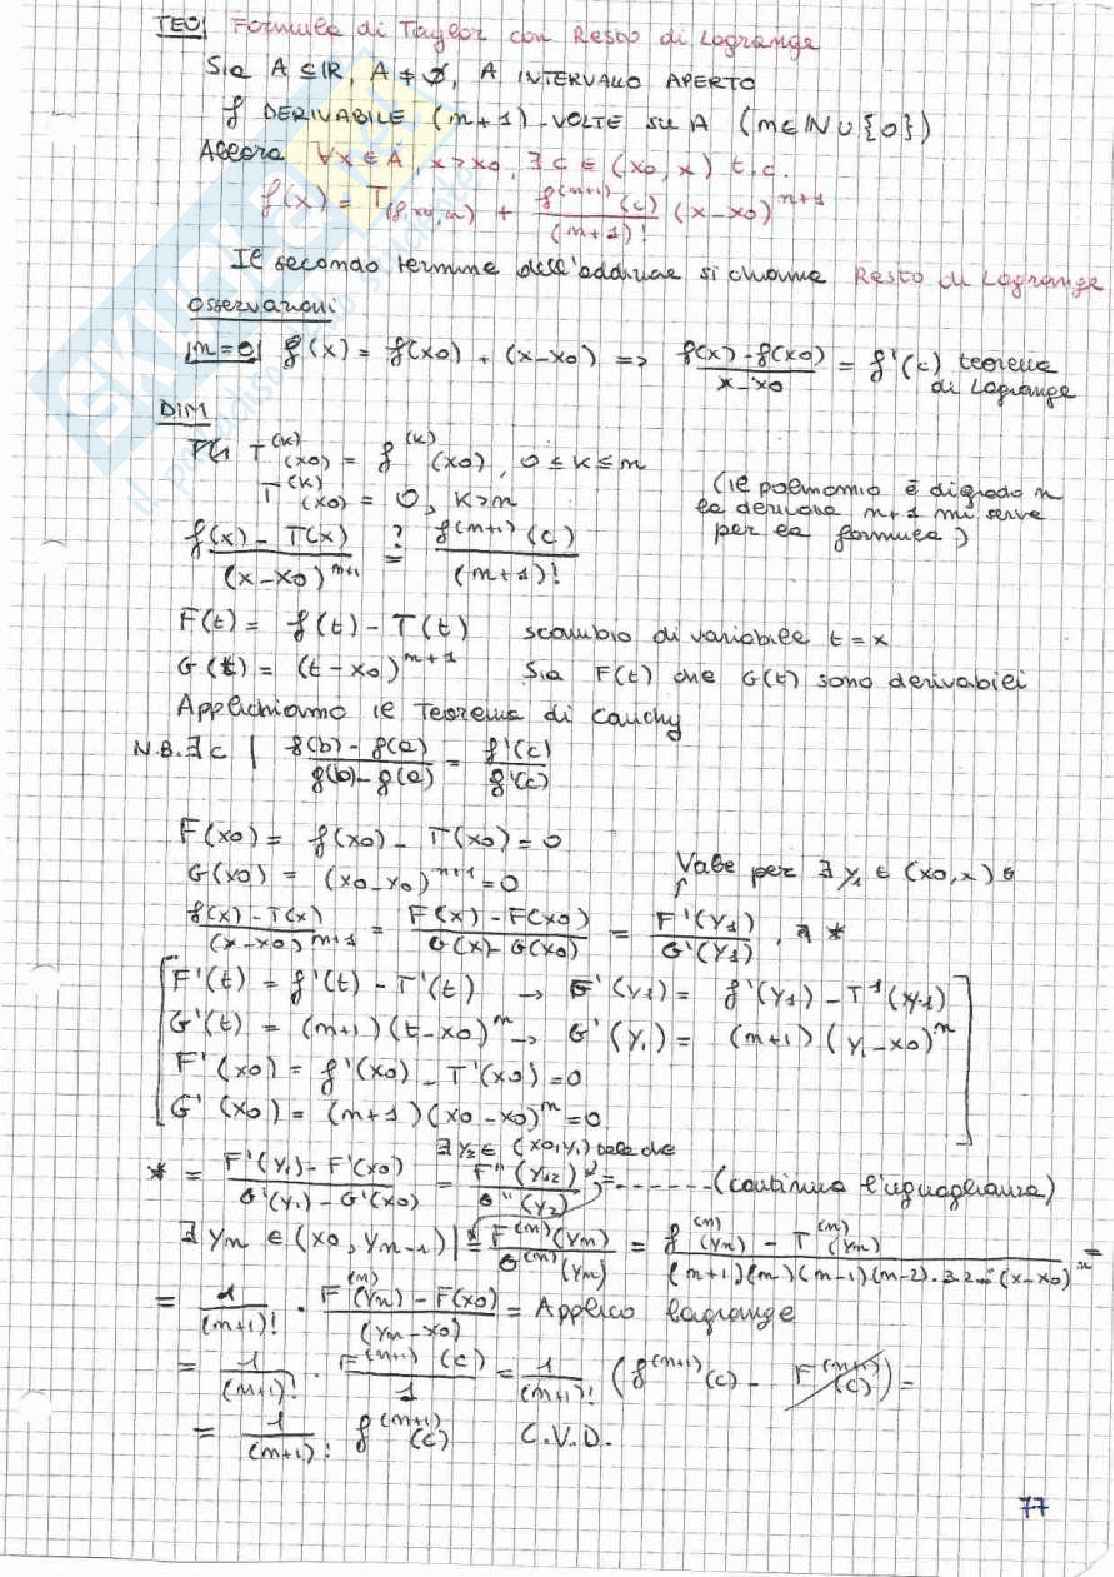 TEO| Formula di Taylor con Resto di Lagrange
Sia A ⊆ IR, A ≠ Ø, A INTERVALLO APERTO
f DERIVABILE (n+1)-VOLTE SU A (n∈IN ∪ {0})
Allora ∀x ∈ A, x > x0, ∃ c ∈ (x0, x) t.c.
f(x) = T(f,x0,n) + f^(n+1)(c)/(n+1)! (x-x0)^n+1
Il secondo termine dell'addizione si chiama Resto di Lagrange
Osservazioni
|n=0| f(x) = f(x0) + (x-x0) => f(x)-f(x0)/x-x0 = f'(c) teorema di Lagrange
DIM
T^(k)(x0) = f^(k)(x0), 0 ≤ k ≤ n
T^(k)(x0) = 0, k>n
(il polinomio è di grado n
la derivata n+1 mi serve
per la formula)
f(x) - T(x)/(x-x0)^n+1 ?= f^(n+1)(c)/(n+1)!
F(t) = f(t) - T(t) scambio di variabile t = x
G(t) = (t-x0)^n+1 Sia F(t) che G(t) sono derivabili
Applichiamo il Teorema di Cauchy
N.B. ∃ c | f(b)-f(a)/g(b)-g(a) = f'(c)/g'(c)
F(x0) = f(x0) - T(x0) = 0
G(x0) = (x0-x0)^n+1 = 0
Vale per ∃ y1 ∈ (x0,x)
f(x)-T(x)/(x-x0)^n+1 = F(x)-F(x0)/G(x)-G(x0) = F'(y1)/G'(y1) . *
F'(t) = f'(t) - T'(t) → F'(y1) = f'(y1) - T'(y1)
G'(t) = (n+1)(t-x0)^n → G'(y1) = (n+1)(y1-x0)^n
F'(x0) = f'(x0) - T'(x0) = 0
G'(x0) = (n+1)(x0-x0)^n = 0
∃ y2 ∈ (x0,y1) tale che
* = F'(y1)-F'(x0)/G'(y1)-G'(x0) = F''(y2)/G''(y2) = ------(continua l'uguaglianza)
∃ yn ∈ (x0, yn-1) | = F^(n)(yn)/G^(n)(yn) = f^(n)(yn) - T^(n)(yn)/(n+1)(n)(n-1)(n-2)·3·2··(x-x0)^n =
= 1/(n+1)! · F^(n)(yn)-F(x0)/(yn-x0) = Applico Lagrange
= 1/(n+1)! · F^(n+1)(c)/1 = 1/(n+1)! (f^(n+1)(c) - F^(n+1)(c)) =
= 1/(n+1)! f^(n+1)(c) C.V.D.
77